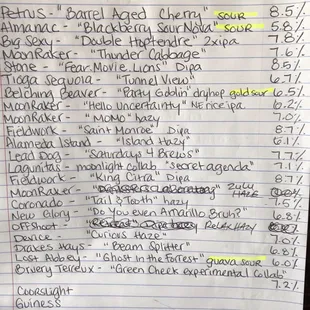 Petrus - "Barrel Aged Cherry" SOUR 8.5%
Almanac - "Blackberry SourNova" SOUR 5.8%
Big Sexy - "Double Hoptendre" 2xipa 7.8%
MoonRaker - "Thunder Cabbage" 7.6%
Stone - "Fear.Movie.Lions" Dipa 8.5%
Tioga Sequoia - "Tunnel View" 6.7%
Belching Beaver - "Party Goblin" dryhop gold sour 6.5%
MoonRaker - "Hello Uncertainty" NE rice ipa 6.2%
MoonRaker - "MoMo" hazy 7.0%
Fieldwork - "Saint Monroe" Dipa 8.7%
Alameda Island - "Island Hazy" 6.1%
Lead Dog - "Saturdays 4 Brews" 7.7%
Lagunitas - moonlight collab "secret agenda" 7.1%
Fieldwork - "King Citra" Dipa 8.7%
MoonRaker - ZULU HAZE
Coronado - "Tail & Tooth" hazy 7.5%
New Glory - "Do You even Amarillo Bruh?" 6.8%
Offshoot - RELAX HAZY
Device - "Curious Haze" 7.0%
Drakes Hays - "Beam Splitter" 6.8%
Lost Abbey - "Ghost In the Forrest" guava sour 6.0%
Bruery Terreux - "Green Check experimental Collab" 7.2%
Coorslight
Guiness